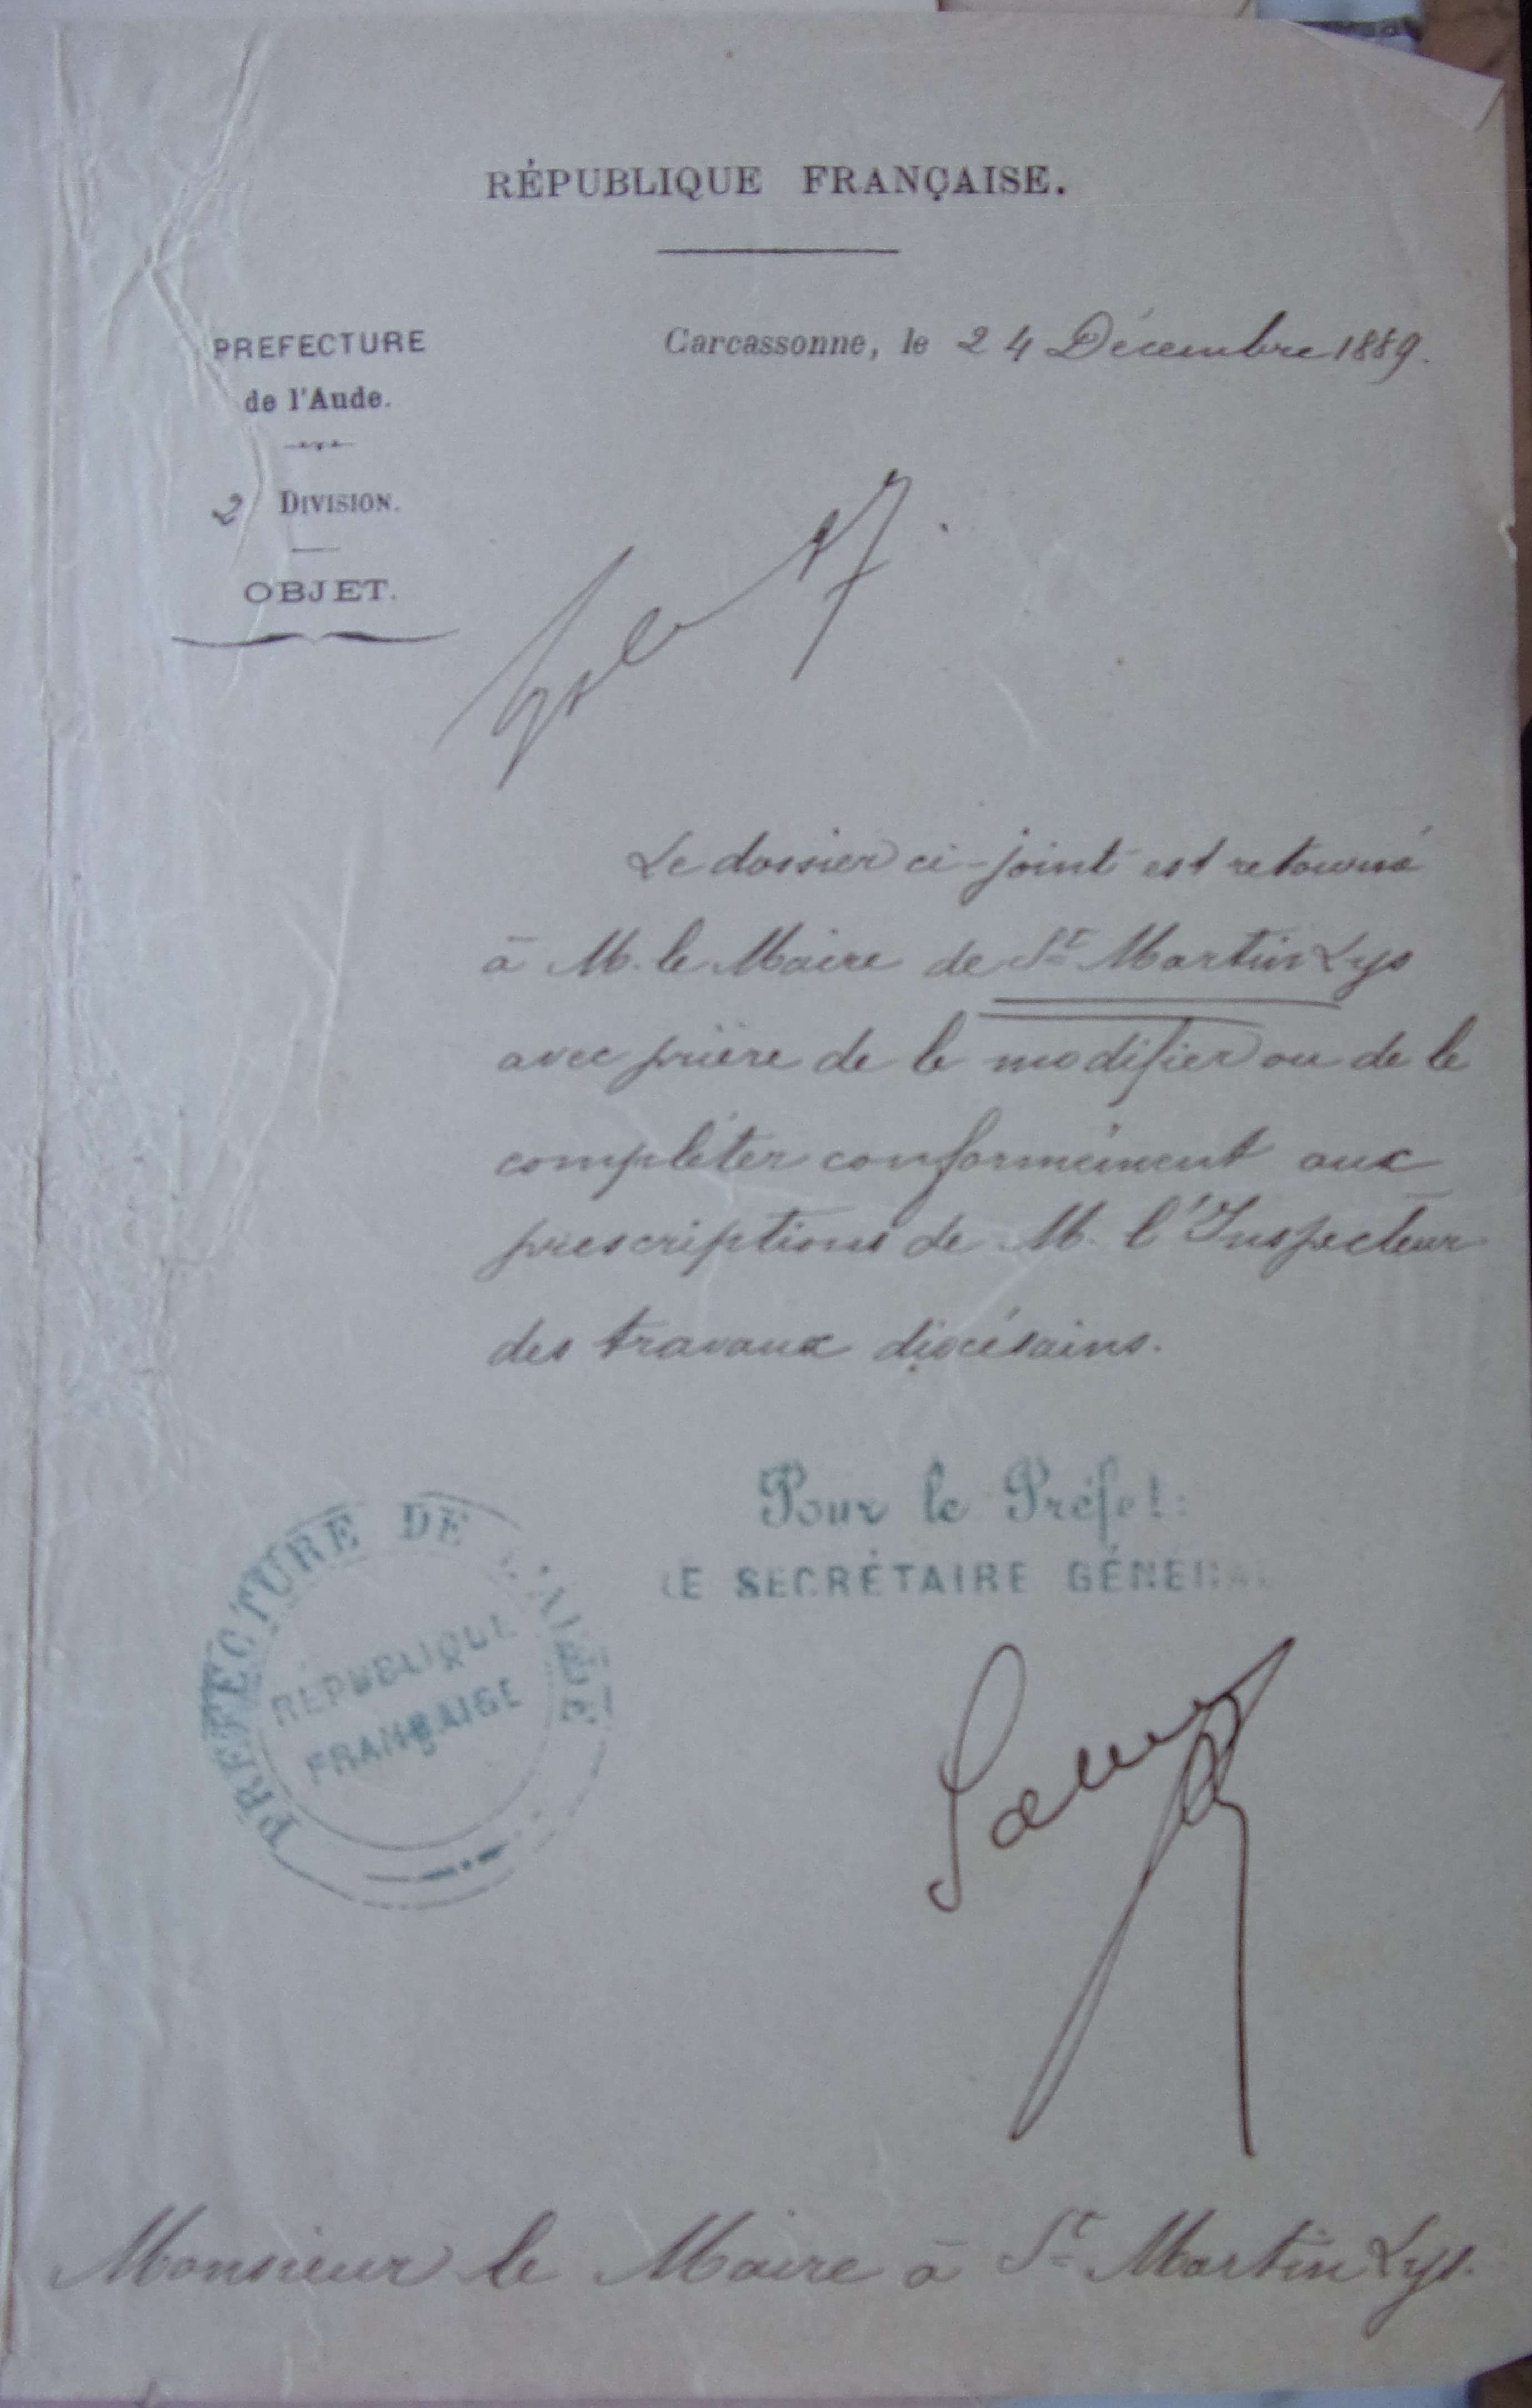 RÉPUBLIQUE FRANÇAISE.
PREFECTURE
de l'Aude.
Carcassonne, le 24 Décembre 1889.
2 DIVISION.
OBJET.
Le dossier ci-joint est retourné
à M. le Maire de St Martin Lys
avec prière de le modifier ou de le
compléter conformément aux
prescriptions de M. l'Inspecteur
des travaux diocésains.
Pour le Préfet:
LE SECRÉTAIRE GÉNÉRAL
PREFECTURE DE L'AUDE
RÉPUBLIQUE
FRANÇAISE
Monsieur le Maire à St Martin Lys.